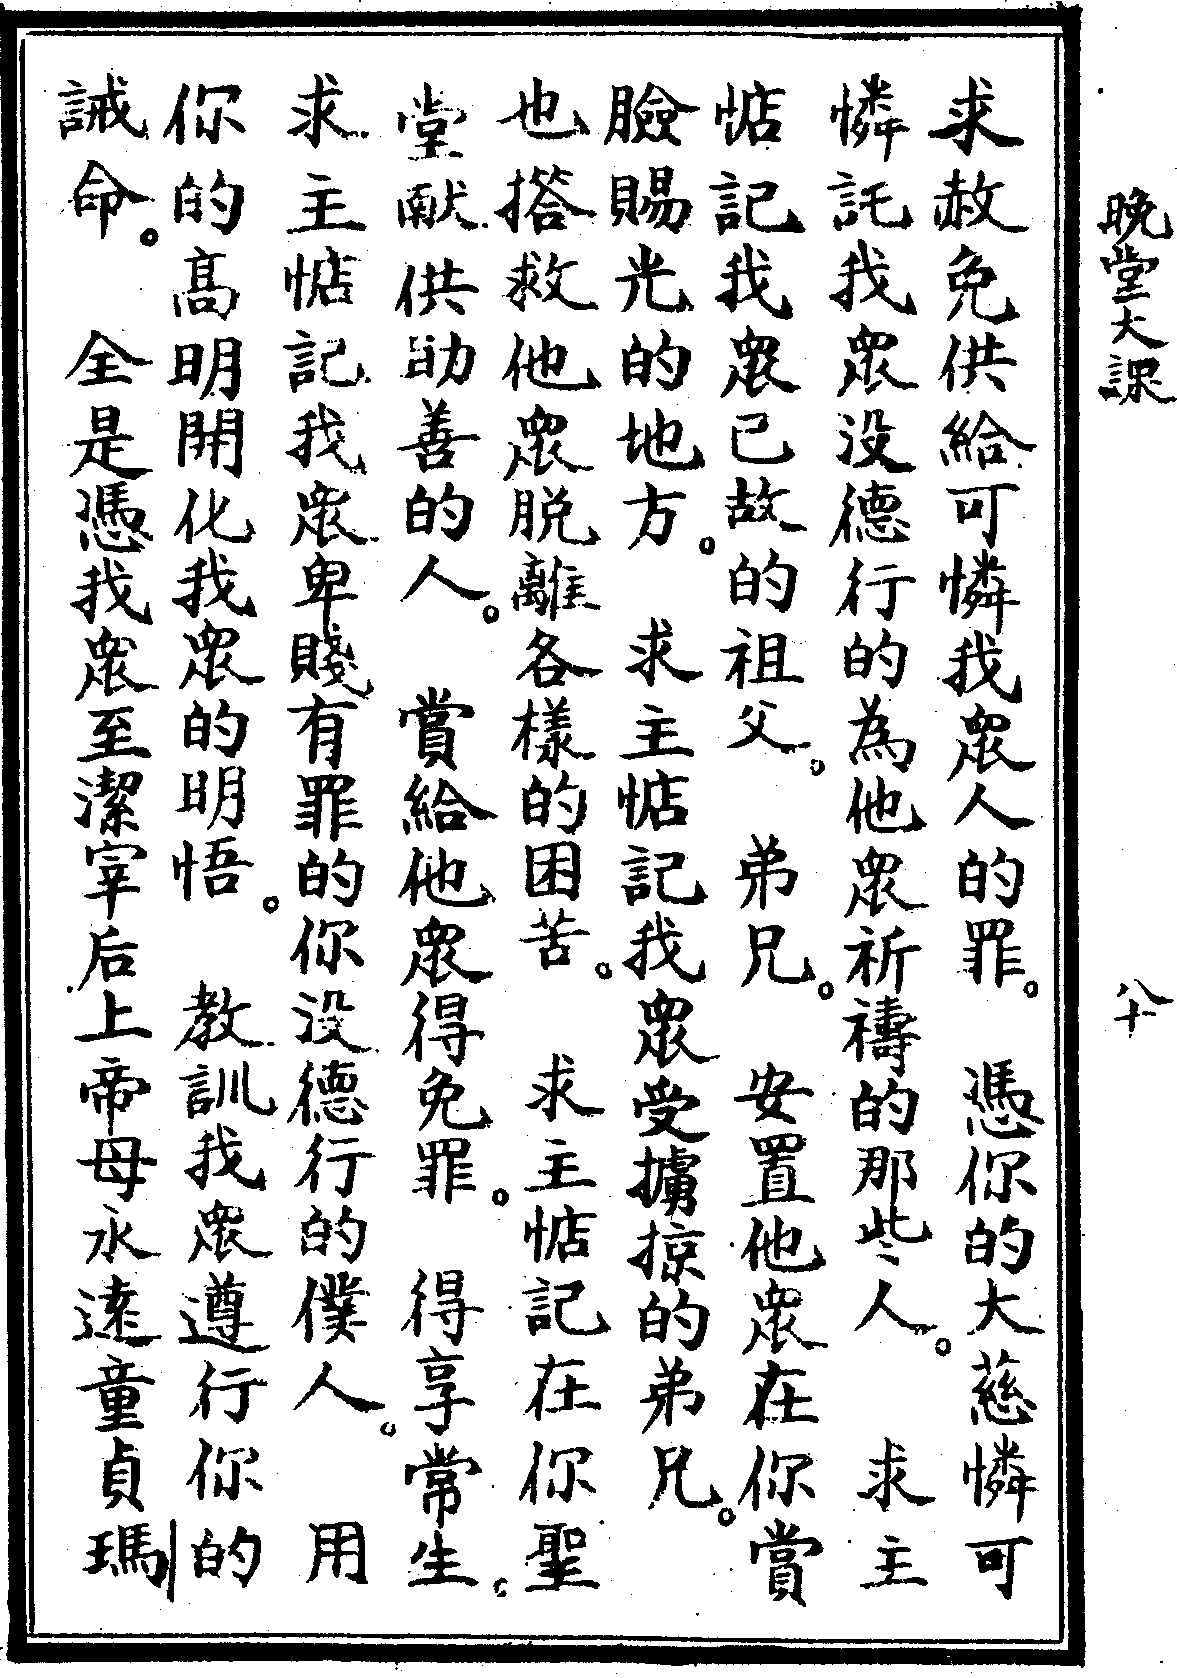 晚堂大課
八十
求赦免供給可憐我衆人的罪。憑你的大慈憐可
憐託我衆没德行的為他衆祈禱的那些人。求主
惦記我衆已故的祖父。弟兄。安置他衆在你賞
臉賜光的地方。求主惦記我衆受擄掠的弟兄。
也搭救他衆脱離各樣的困苦。求主惦記在你聖
堂献供助善的人。賞給他衆得免罪。得享常生。
求主惦記我衆卑賤有罪的你没德行的僕人。用
你的高明開化我衆的明悟。教訓我衆遵行你的
誡命。全是憑我衆至潔宰后上帝母永遠童貞瑪